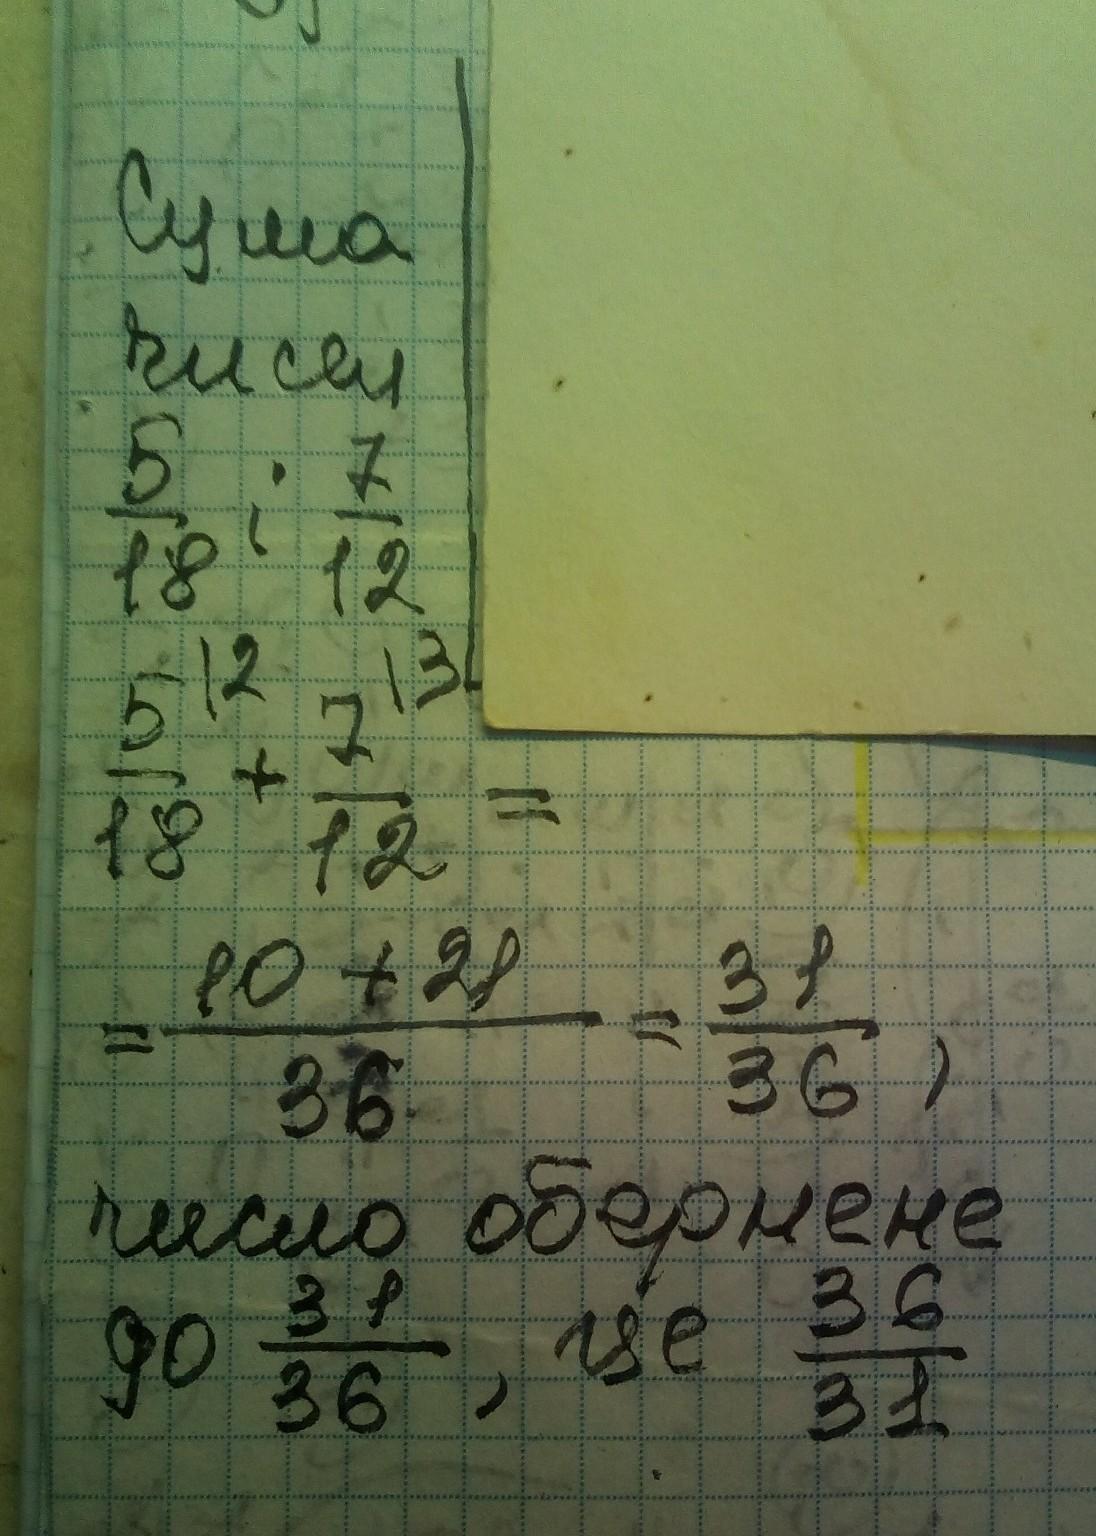 Сума
чисел
5/18 і 7/12
5/18 \2 + 7/12 \3 =
= 10 + 21/36 = 31/36 ,
число обернене
до 31/36 , це 36/31